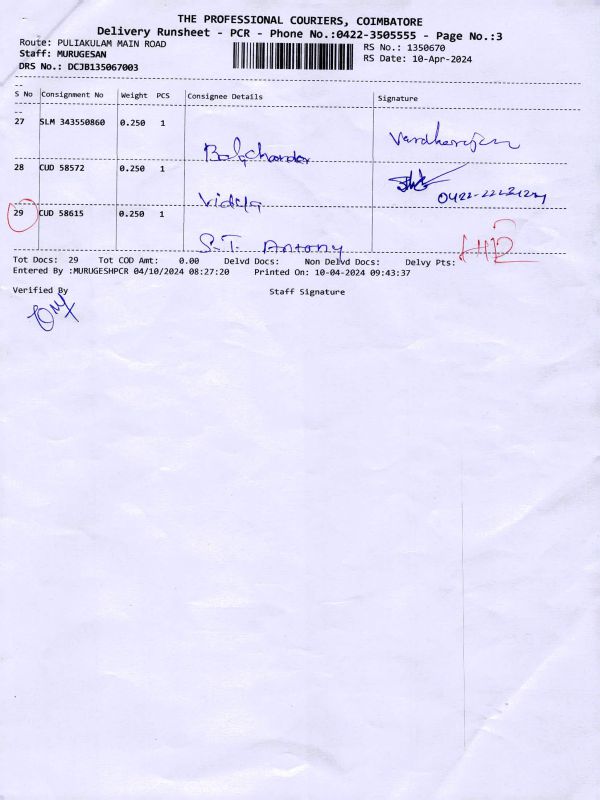 THE PROFESSIONAL COURIERS, COIMBATORE
Delivery Runsheet - PCR - Phone No.:0422-3505555 - Page No.:3
Route: PULIAKULAM MAIN ROAD
RS No.: 1350670
Staff: MURUGESAN
RS Date: 10-Apr-2024
DRS No.: DCJB135067003
S No Consignment No Weight PCS Consignee Details Signature
27 SLM 343550860 0.250 1
Balachander
28 CUD 58572 0.250 1
Vidhya
29 CUD 58615 0.250 1
S.T. Antony
Tot Docs: 29 Tot COD Amt: 0.00 Delvd Docs: Non Delvd Docs: Delvy Pts:
Entered By :MURUGESHPCR 04/10/2024 08:27:20 Printed On: 10-04-2024 09:43:37
Verified By Staff Signature